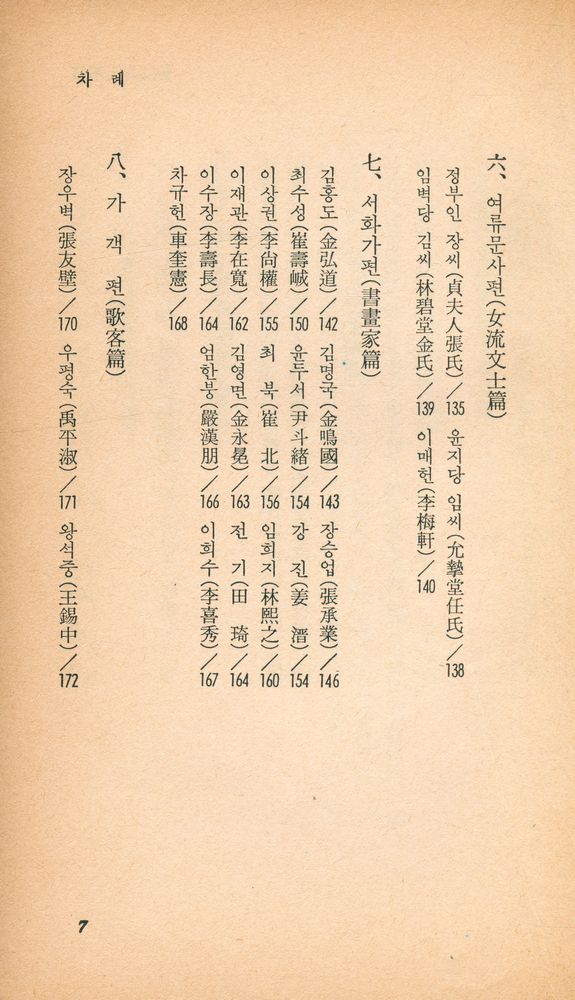 차 례
六、 여류문사편(女流文士篇)
정부인 장씨(貞夫人張氏)／135 윤지당 임씨(允摯堂任氏)／138
임벽당 김씨(林碧堂金氏)／139 이매헌(李梅軒)／140
七、 서화가편(書畫家篇)
김홍도(金弘道)／142 김명국(金鳴國)／143 장승업(張承業)／146
최수성(崔壽峸)／150 윤두서(尹斗緖)／154 강 진(姜 溍)／154
이상권(李尙權)／155 최 북(崔 北)／156 임희지(林熙之)／160
이재관(李在寬)／162 김영면(金永冕)／163 전 기(田 琦)／164
이수장(李壽長)／164 엄한붕(嚴漢朋)／166 이희수(李喜秀)／167
차규헌(車奎憲)／168
八、 가 객 편(歌客篇)
장우벽(張友壁)／170 우평숙(禹平淑)／171 왕석중(王錫中)／172
7